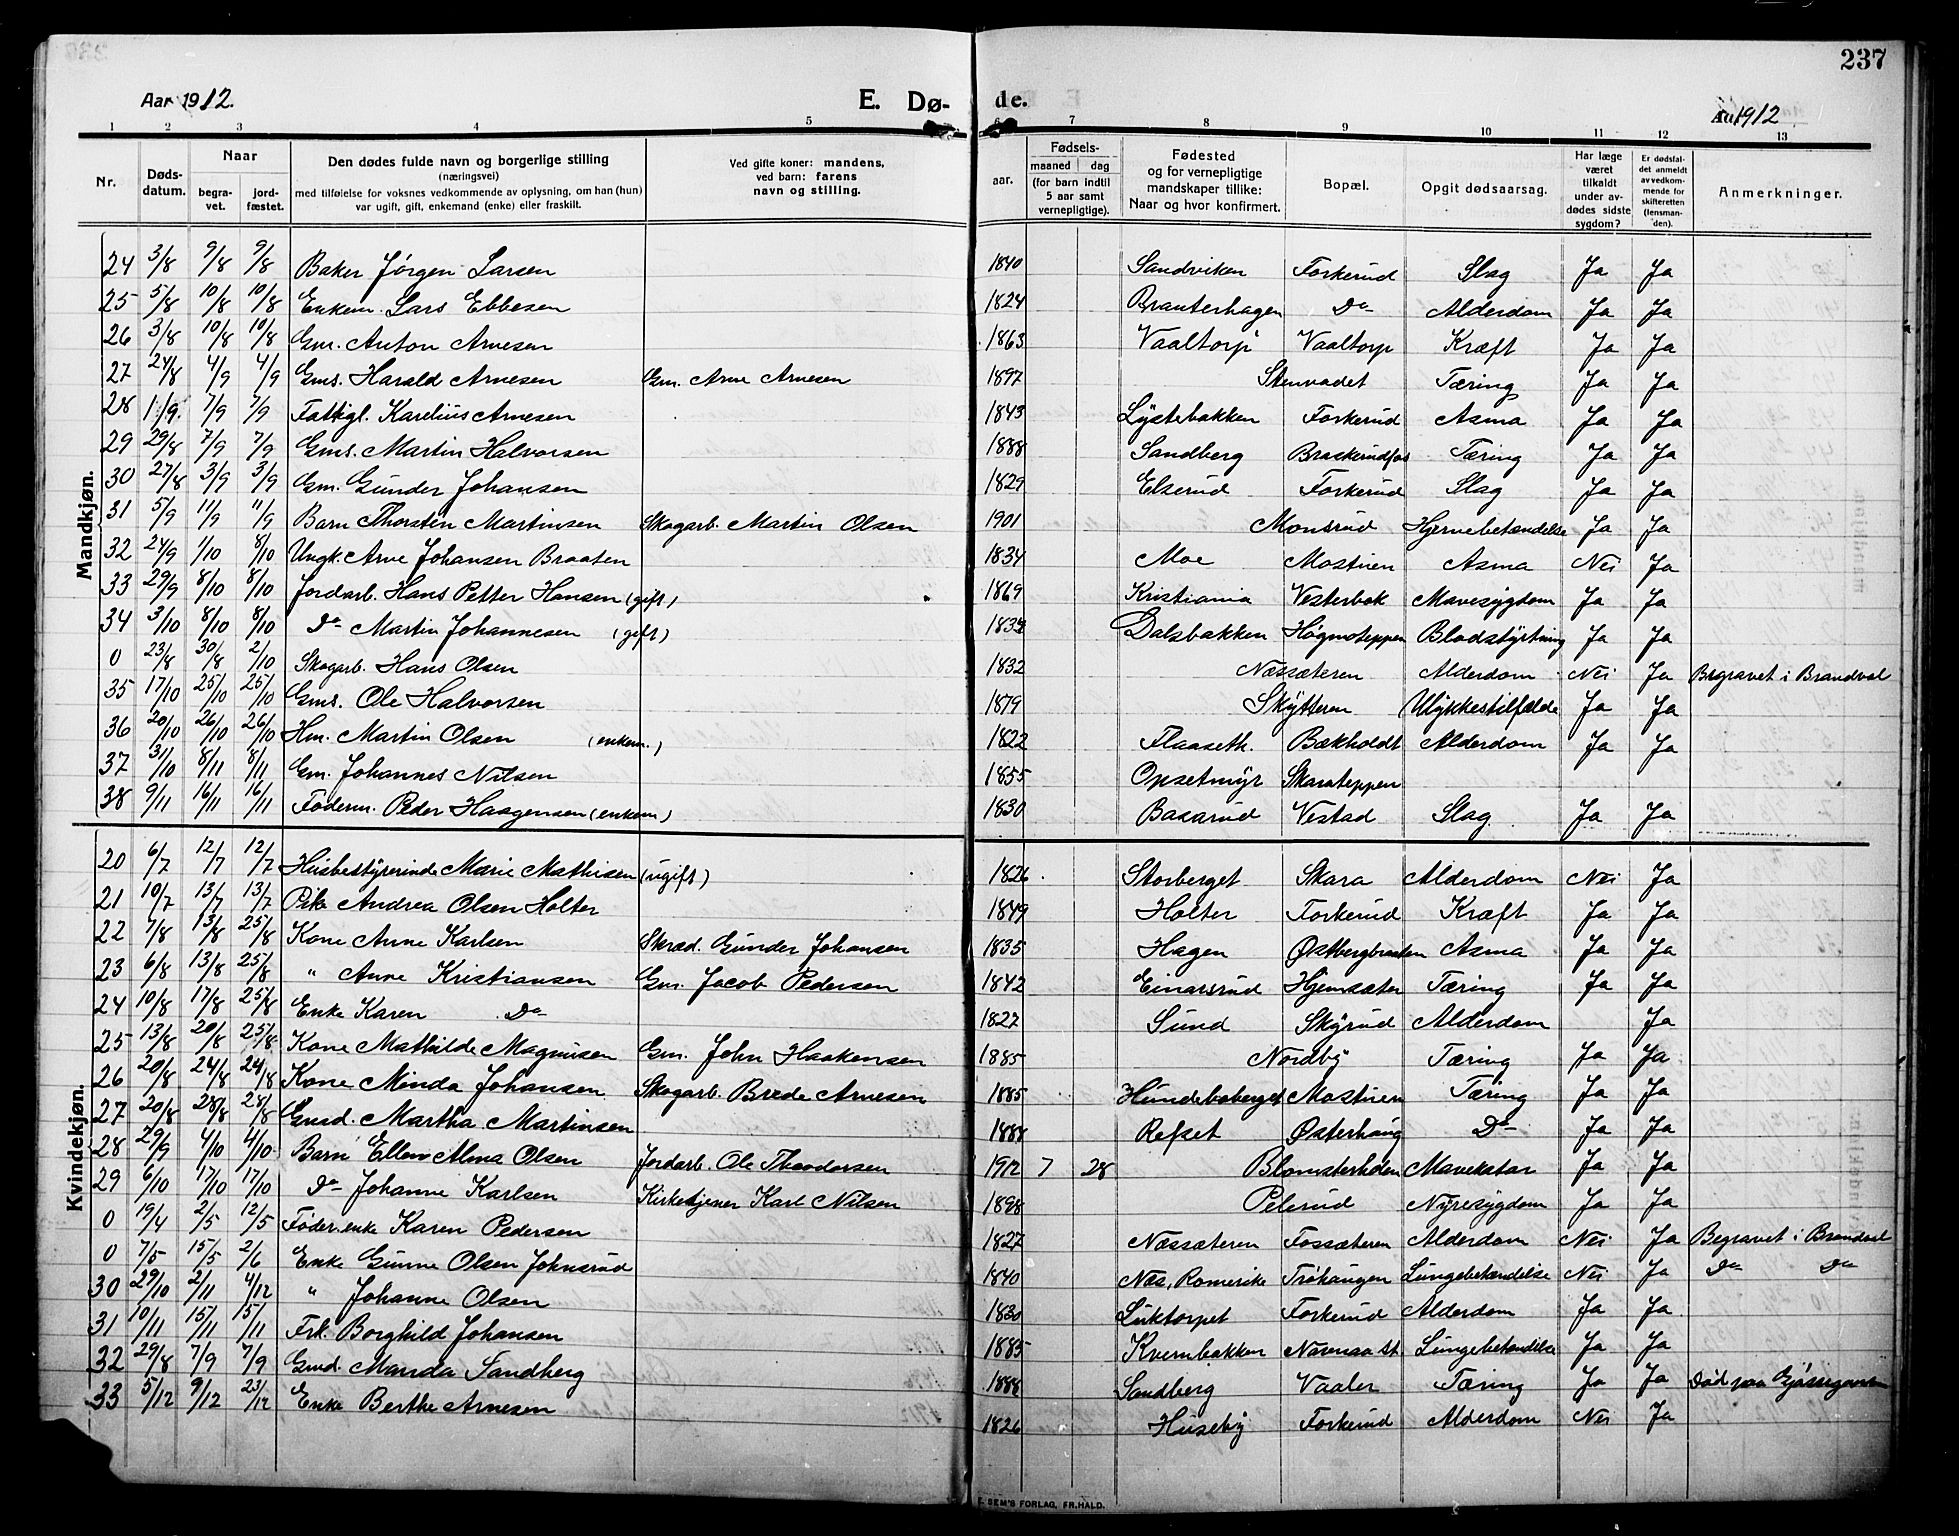 237
Aar 1912.
E. Dø-
de.
Aar 1912
1 2 3 4 5 6 7 8 9 10 11 12 13
Nr.
Døds-
datum.
Naar
begra-
vet.
jord-
fæstet.
Den dødes fulde navn og borgerlige stilling
(næringsvei)
med tilføielse for voksnes vedkommende av oplysning, om han (hun)
var ugift, gift, enkemand (enke) eller fraskilt.
Ved gifte koner: mandens,
ved barn: farens
navn og stilling.
aar.
Fødsels-
maaned dag
(for barn indtil
5 aar samt
vernepligtige).
Fødested
og for vernepligtige
mandskaper tillike:
Naar og hvor konfirmert.
Bopæl.
Opgit dødsaarsag.
Har læge
været
tilkaldt
under av-
dødes sidste
sygdom?
Er dødsfal-
det anmeldt
av vedkom-
mende for
skifteretten
(lensman-
den).
Anmerkninger.
Mandkjøn.
24 3/8 9/8 9/8 Baker Jørgen Larsen 1840 Sandviken Forkerud Slag Ja Ja
25 5/8 10/8 10/8 Enkem. Lars Ebbesen 1824 Brauterhagen Do Alderdom Ja Ja
26 3/8 10/8 10/8 Gm. Anton Arnesen 1863 Vaaltorp Vaaltorp Kræft Ja Ja
27 24/8 4/9 4/9 Gms. Harald Arnesen Gm. Arne Arnesen 1897 Stenvadet Tæring Ja Ja
28 1/9 7/9 7/9 Fattigl. Karelius Arnesen 1843 Lystebakken Forkerud Asma Ja Ja
29 29/8 7/9 7/9 Gms. Martin Halvorsen 1888 Sandberg Braskerudfos Tæring Ja Ja
30 27/8 3/9 3/9 Gm. Gunder Johansen 1829 Elserud Forkerud Slag Ja Ja
31 5/9 11/9 11/9 Barn Thorstin Martinsen Skogarb. Martin Olsen 1901 Monsrud Hjernebetændelse Ja Ja
32 24/9 1/10 8/10 Ungk. Arne Johansen Braaten 1834 Moe Mostuen Asma Nei Ja
33 29/9 8/10 8/10 Jordarb. Hans Petter Hansen (gift) 1869 Kristiania Vesterbek Mavesygdom Ja Ja
34 3/10 8/10 8/10 Do Martin Johannesen (gift) 1834 Dalsbakken Høgmoteppen Blodstyrtning Ja Ja
0 23/8 30/8 2/10 Skogarb. Hans Olsen 1832 Næssæteren Alderdom Nei Ja Begravet i Brandval
35 17/10 25/10 25/10 Gms. Ole Halvorsen 1879 Skytteren Ulykkestilfælde Ja Ja
36 20/10 26/10 26/10 Hm. Martin Olsen (enkem.) 1822 Flaaseth. Bækholdt Alderdom Ja Ja
37 31/10 8/11 8/11 Gm. Johannes Nilsen 1855 Opsetmyr Skarateppen
38 9/11 16/11 16/11 Føderm. Peder Haagensen (enkem) 1830 Basarud Vestad Slag Ja Ja
Kvindekjøn.
20 6/7 12/7 12/7 Husbestyrerinde Marie Mathisen (ugift) 1826 Storberget Skara Alderdom Nei Ja
21 10/7 13/7 13/7 Pike Andrea Olsen Holter 1849 Holter Forkerud Kræft Ja Ja
22 7/8 13/8 25/8 Kone Anne Karlsen Skræd. Gunder Johansen 1835 Hagen Østbergbraaten Asma Ja Ja
23 6/8 13/8 25/8 " Anne Kristiansen Gm. Jacob Pedersen 1842 Einarsrud Hjemsæter Tæring Ja Ja
24 10/8 17/8 25/8 Enke Karen Do 1827 Sund Skyrud Alderdom Ja
25 13/8 20/8 25/8 Kone Mathilde Magnusen Gm. John Haakensen 1885 Nordby Tæring Ja Ja
26 20/8 24/8 24/8 Kone Minda Johansen Skogarb. Brede Arnesen 1885 Hundeboberget Mostuen Tæring Ja Ja
27 20/8 28/8 28/8 Gmd. Martha Martinsen 1888 Refset Østerhaug Do Ja Ja
28 29/9 4/10 4/10 Barn Ellen Alma Olsen Jordarb. Ole Theodorsen 1912 7 28 Blomsterheden Mavekatar Ja Ja
29 6/10 17/10 17/10 Do Johanne Karlsen Kirketjener Karl Nilsen 1898 Pelerud Nyresygdom Ja Ja
0 19/4 2/5 12/5 Føder.enke Karen Pedersen 1827 Næssæteren Fossæteren Alderdom Nei Ja Begravet i Brandval
0 7/5 15/5 2/6 Enke Gunne Olsen Johnsrud 1840 Næs, Romerike Trøhaugen Lungebetændelse Nei Ja Do Do
30 29/10 2/11 4/12 " Johanne Olsen 1830 Luktorpet Forkerud Alderdom Ja Ja
31 10/11 15/11 15/11 Frk. Borghild Johansen 1885 Kvernbakken Navnaa st. Lungebetændelse Ja Ja
32 29/8 7/9 7/9 Gmd. Manda Sandberg 1888 Sandberg Vaaler Tæring Ja Ja Død paa
33 5/12 9/12 23/12 Enke Berthe Arnesen 1826 Huseby Forkerud Alderdom Nei Ja
SEM'S FORLAG, FR.HALD.